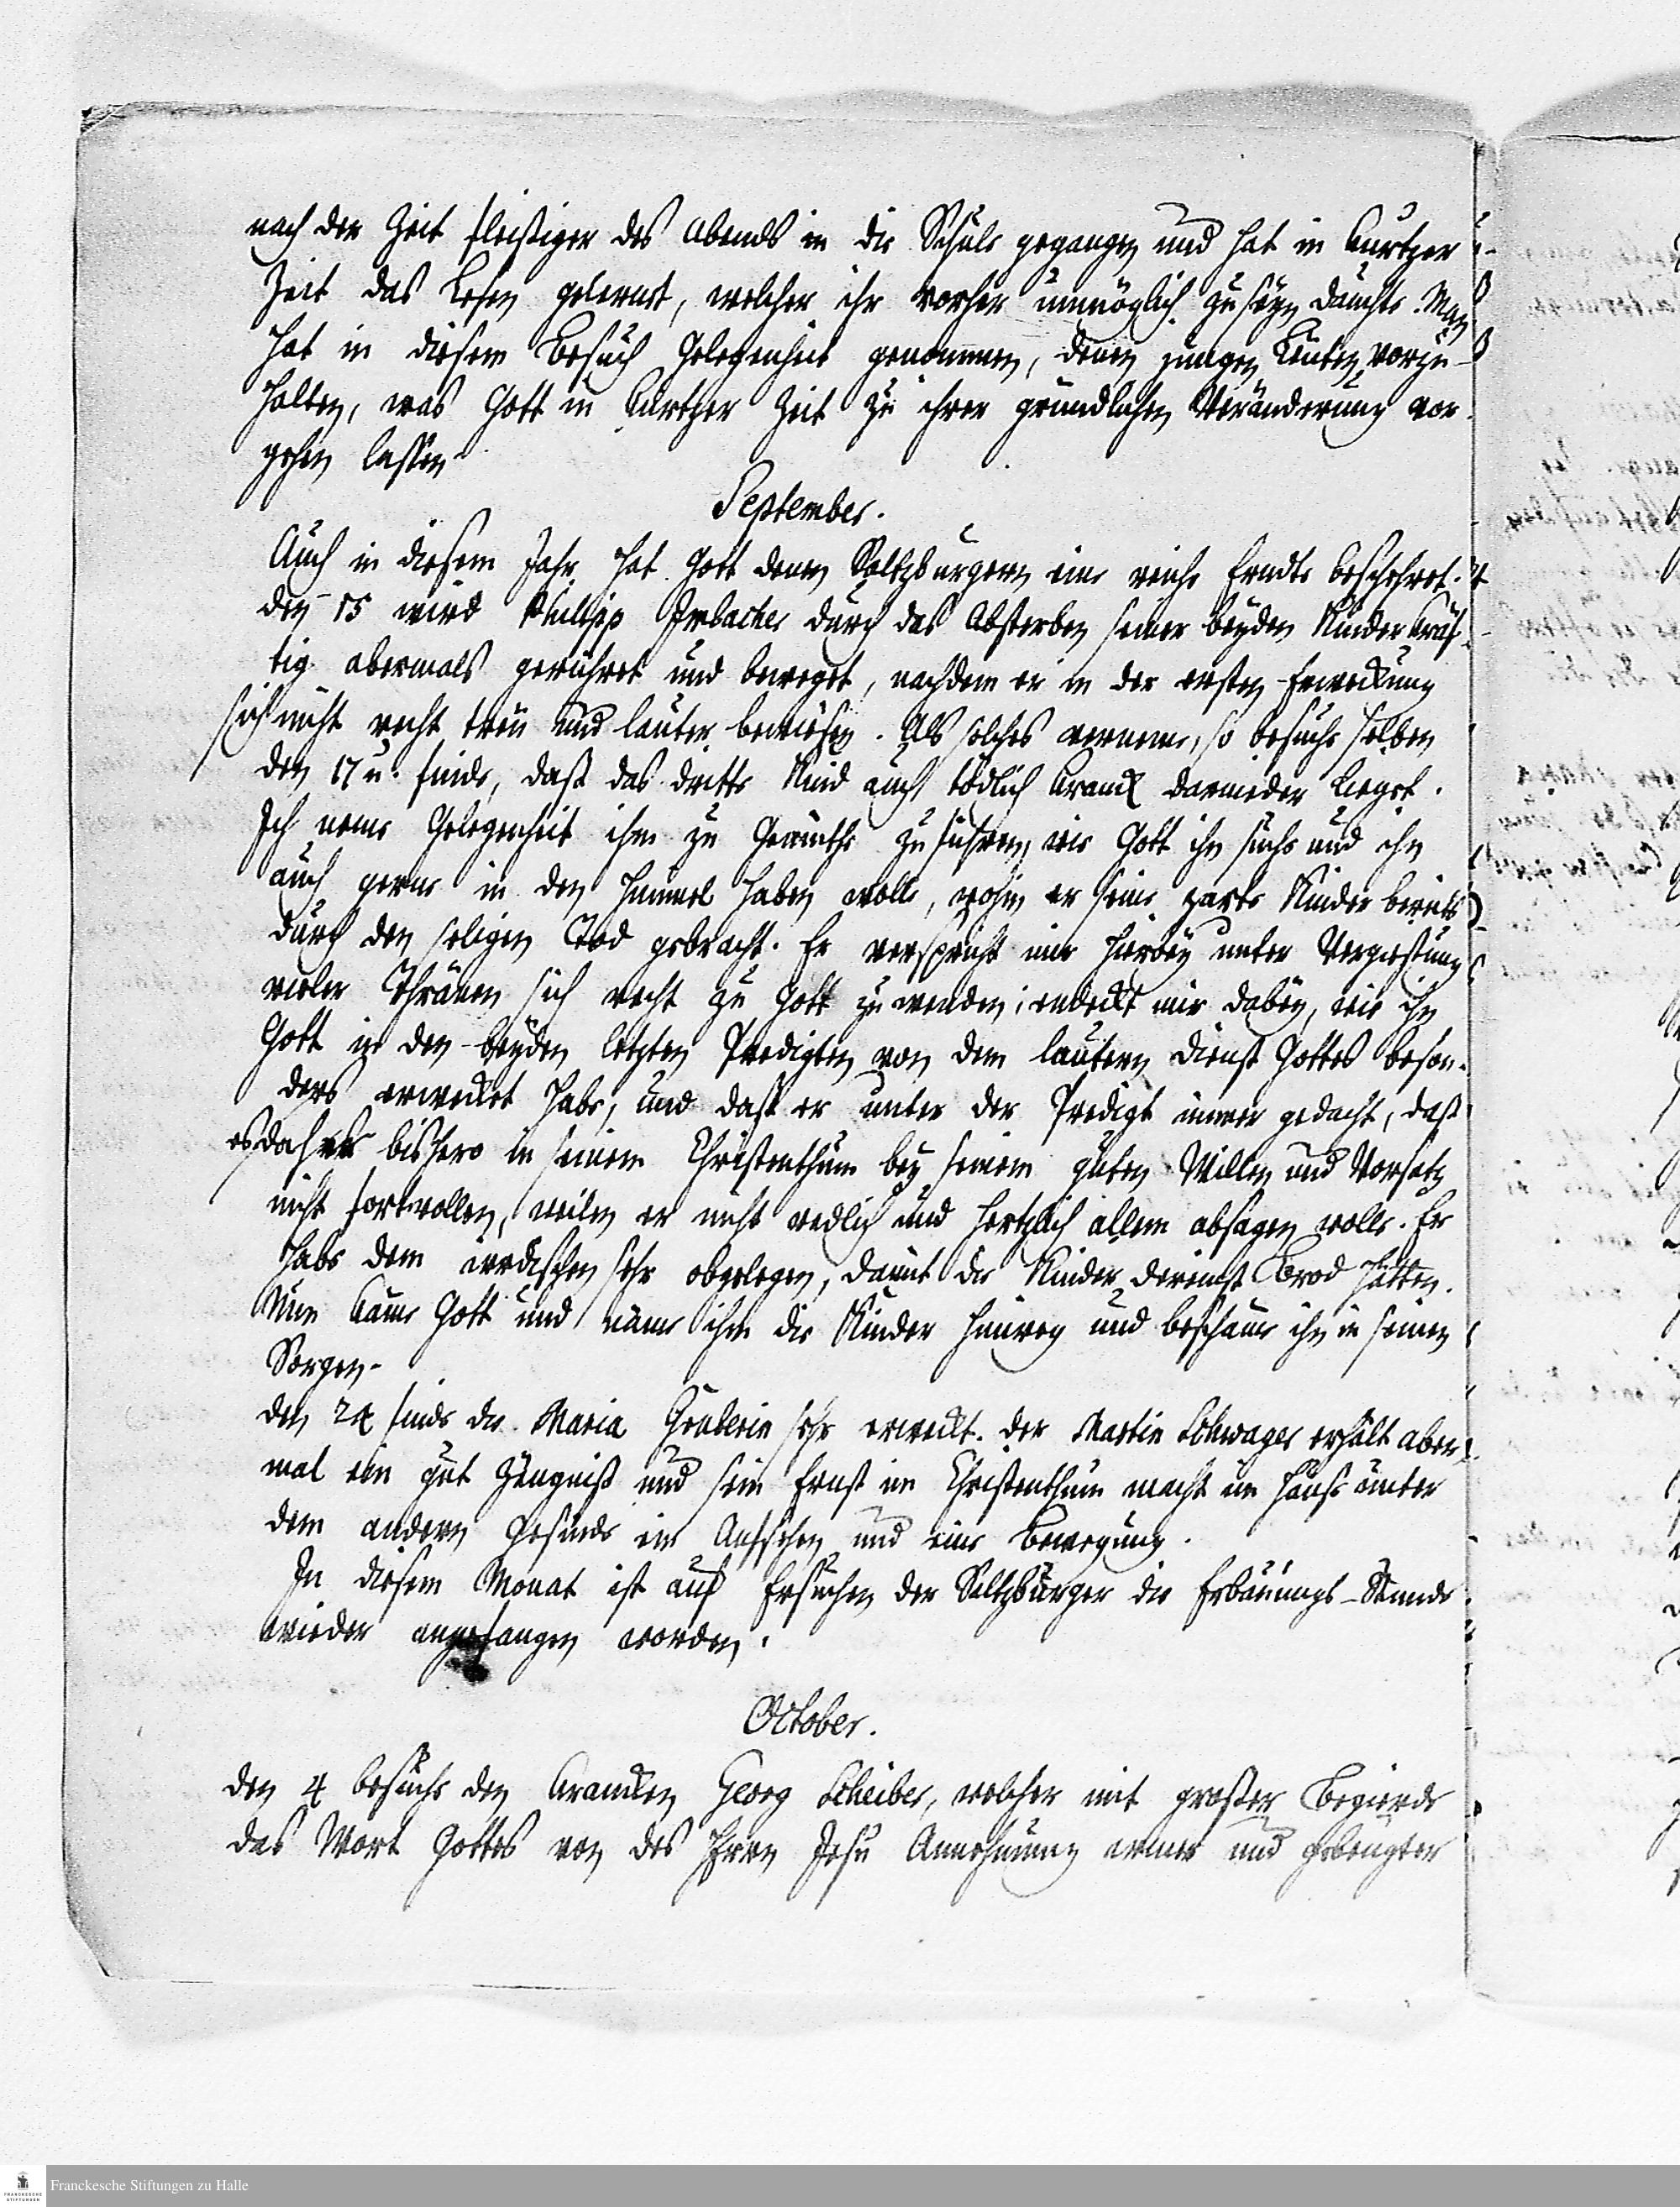 nach der Zeit fleißiger des Abends in die Schule gegangen und hat in kurtzer
Zeit das Lesen gelernet, welches ihr vorher unmöglich zu seyn dauchte. Man
hat in diesem Besuch Gelegenheit genommen, denen jungen Leuten vorzu-
halten, was Gott in kurtzer Zeit zu ihrer gründlichen Veränderung vor-
gehen lassen.
September.
Auch in diesem Jahr hat Gott denen Saltzburgern eine reiche Erndte bescheret.
Den 15 wird Philipp Irbacher durch das Absterben seiner beyden Kinder kräf-
tig abermals gerühret und beweget, nachdem er in der ersten Erweckung
sich nicht recht treu und lauter bewiesen. Als solches verneme, so besuche selben
den 17 u. finde, daß das dritte Kind auch tödlich kranck darnieder lieget.
Ich neme Gelegenheit ihm zu Gemüthe zu führen, wie Gott ihn suche und ihn
auch gerne in den Himmel haben wolle, wohin er seine zarte Kinder bereits
durch den seligen Tod gebracht. Er verspricht mir hierbey unter Vergießung
vieler Thränen sich recht zu Gott zu wenden; endeckt mir dabey, wie ihn
Gott in den beyden letzten Predigten von dem lautern Dienst Gottes beson-
ders erwecket habe, und daß er unter der Predigt immer gedacht, daß
es daher bishero in seinem Christenthum bey seinem guten Willen und Vorsatz
nicht fortwollen, weilen er nicht redlich und hertzlich allem absagen wolle. Er
habe dem irrdischen sehr obgelegen, damit die Kinder dereinst Brod hätten.
Nun käme Gott und näme ihm die Kinder hinweg und beschäme ihn in seinen
Sorgen.
Den 24 finde die Maria Gruberin sehr erweckt. Der Martin Schwager erhält aber-
mal ein gut Zeugniß und sein Ernst im Christenthum macht im Hause unter
dem andern Gesinde ein Aufsehen und eine Bewegung.
In diesem Monat ist auf Ersuchen der Saltzburger die Erbauungs-Stunde
wieder angefangen worden.
October.
Den 4 besuche den krancken Georg Scheiber, welcher mit großer Begierde
das Wort Gottes von des Herrn Jesu Annehmung armer und gebeugter
Franckesche Stiftungen zu Halle
FRANCKESCHE STIFTUNGEN